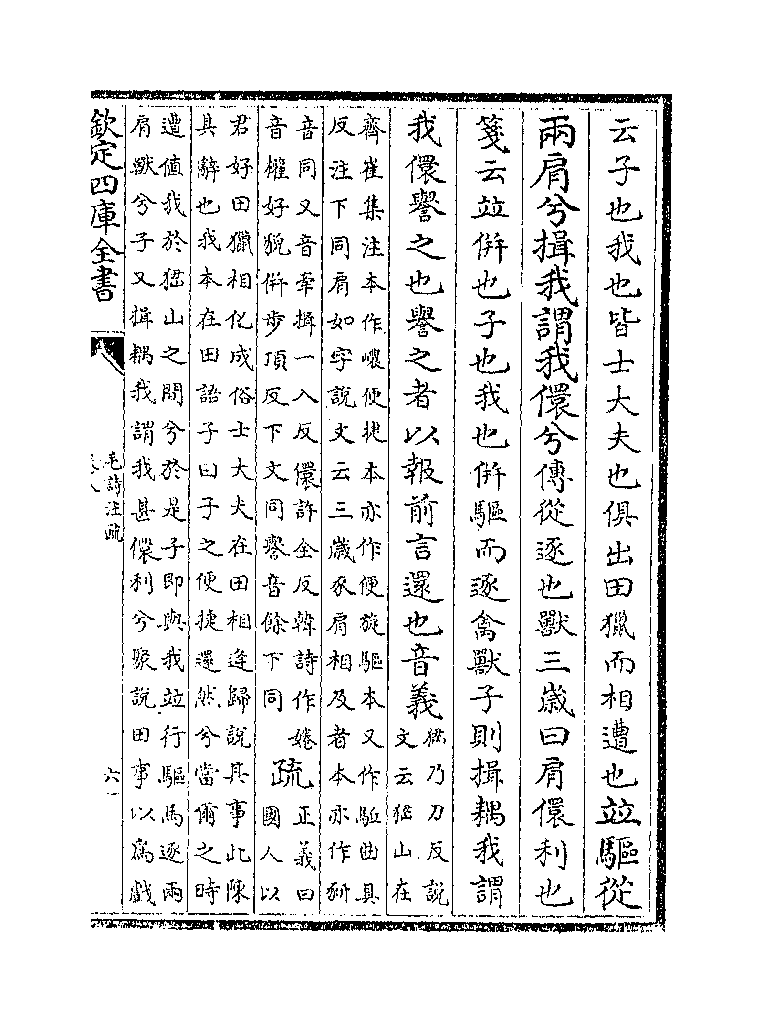 云子也我也皆士大夫也俱出田獵而相遭也並驅從
兩肩兮揖我謂我儇兮傳從逐也獸三歲曰肩儇利也
箋云並倂也子也我也倂驅而逐禽獸子則揖耦我謂
我儇譽之也譽之者以報前言還也音義
猱乃刀反說
文云猱山在
齊崔集注本作嶩便捷本亦作便旋驅本又作駈曲具
反注下同肩如字說文云三歲豕肩相及者本亦作豣
音同又音牽揖一入反儇許全反韓詩作婘
音權好貌倂步頂反下文同譽音餘下同
疏
正義曰
國人以
君好田獵相化成俗士大夫在田相逢歸說其事此陳
其辭也我本在田語子曰子之便捷還然兮當爾之時
遭值我於猱山之間兮於是子即與我並行驅馬逐兩
肩獸兮子又揖耦我謂我甚儇利兮聚說田事以為戲
欽定四庫全書
毛詩注疏
卷八
六